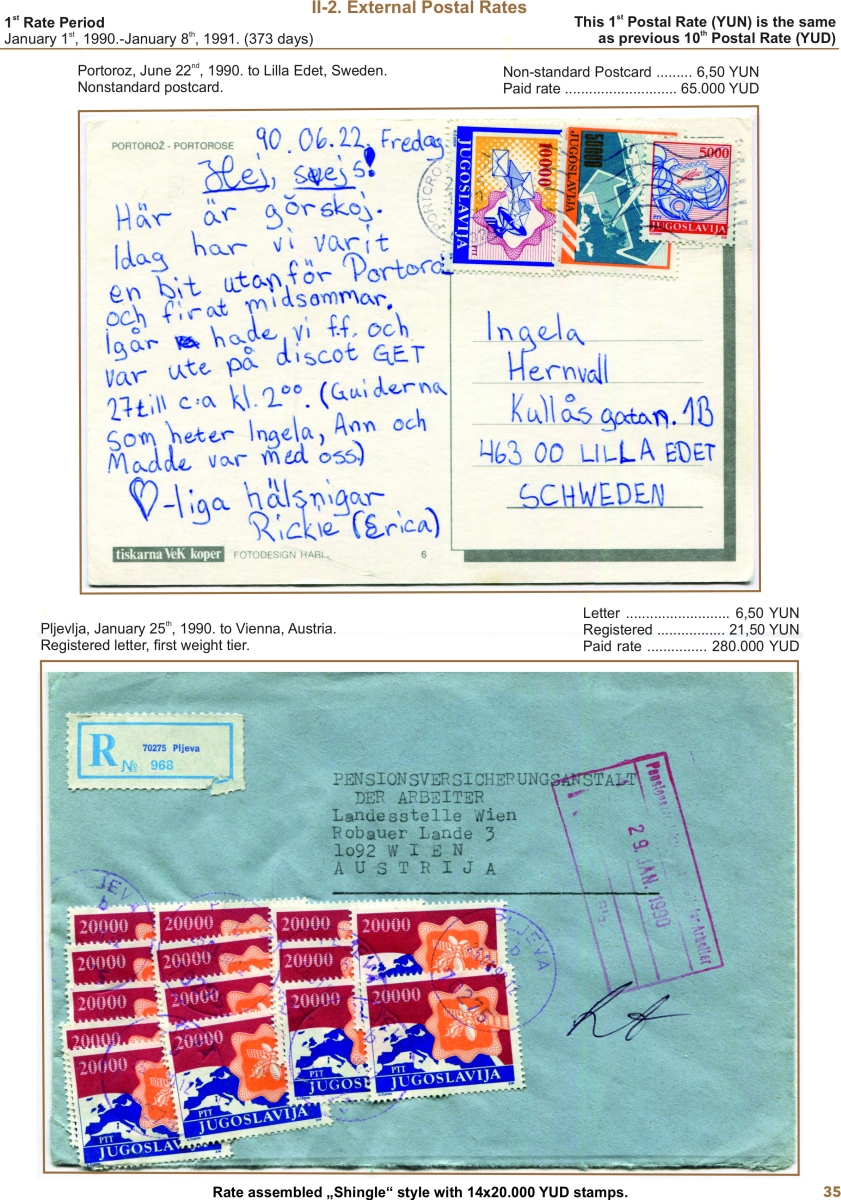 II-2. External Postal Rates
1st Rate Period
January 1st, 1990.-January 8th, 1991. (373 days)
This 1st Postal Rate (YUN) is the same
as previous 10th Postal Rate (YUD)
Portoroz, June 22nd, 1990. to Lilla Edet, Sweden.
Nonstandard postcard.
Non-standard Postcard ......... 6,50 YUN
Paid rate ............................ 65.000 YUD
PORTOROŽ - PORTOROSE
90.06.22. Fredag
Hej, svejs!
Här är görskoj.
Idag har vi varit
en bit utanför Portoro
och firat midsommar.
Igår hade vi f.f. och
var ute på discot GET
27 till c:a kl. 2⁰⁰. (Guiderna
som heter Ingela, Ann och
Madde var med oss.)
♡-liga hälsnigar
Rickie (Erica)
tiskarna VeK koper FOTODESIGN HARI.
6
10000
JUGOSLAVIJA
PTT
50000
JUGOSLAVIJA
5000
PTT
JUGOSLAVIJA
PORTORO
Ingela
Hernvall
Kullåsgatan. 1B
463 00 LILLA EDET
SCHWEDEN
Pljevlja, January 25th, 1990. to Vienna, Austria.
Registered letter, first weight tier.
Letter .......................... 6,50 YUN
Registered ................. 21,50 YUN
Paid rate ............... 280.000 YUD
R
70275 Pljeva
№ 968
PENSIONSVERSICHERUNGSANSTALT
DER ARBEITER
Landesstelle Wien
Robauer Lande 3
1092 W I E N
A U S T R I J A
29. JAN. 1990
der Arbeiter
PLJEVA
20000 20000 20000 20000
20000 20000 20000
20000 20000 20000 20000
20000 20000
20000
PTT JUGOSLAVIJA
PTT JUGOSLAVIJA
PTT JUGOSL
PTT JUGOSLAVIJA
Rate assembled „Shingle“ style with 14x20.000 YUD stamps.
35